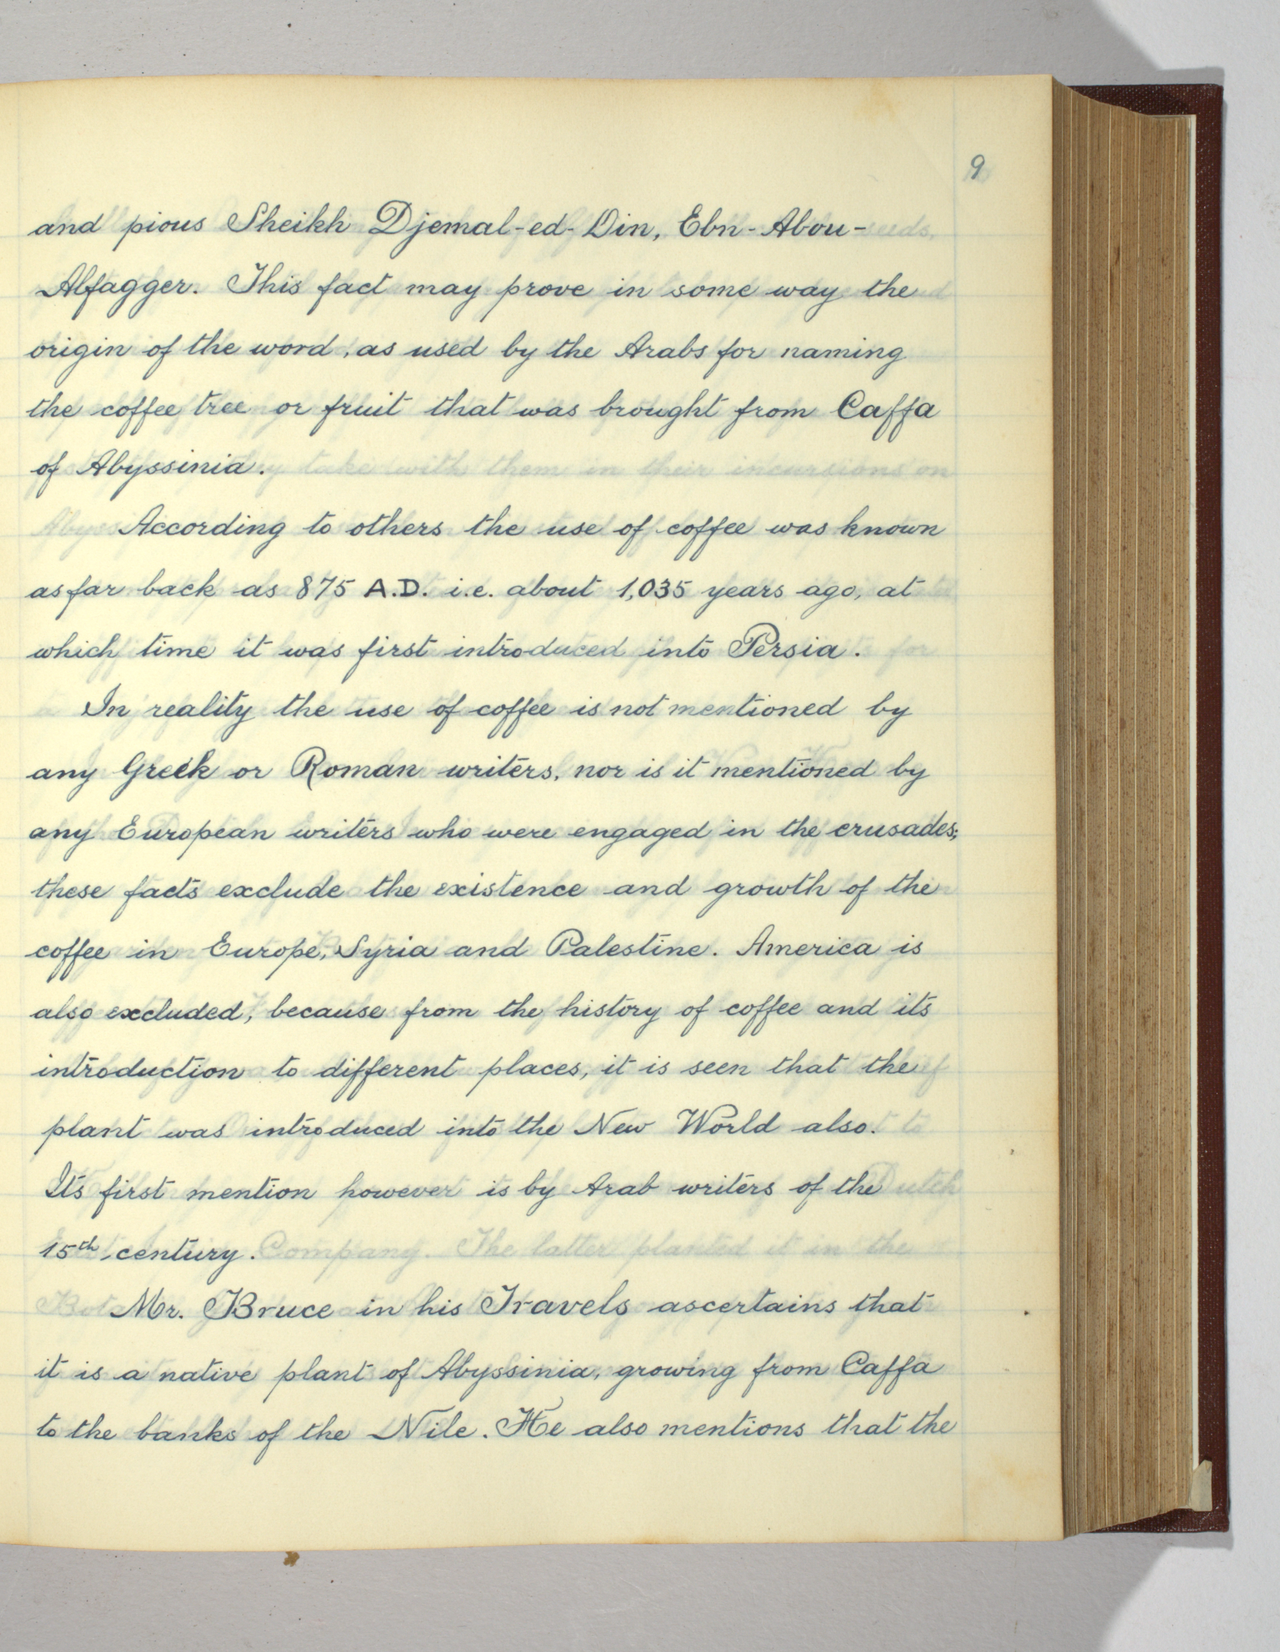 9
and pious Sheikh Djemal-ed-Din, Ebn-Abou-
Alfagger. This fact may prove in some way the
origin of the word, as used by the Arabs for naming
the coffee tree or fruit that was brought from Caffa
of Abyssinia.
According to others the use of coffee was known
as far back as 875 A.D. i.e. about 1,035 years ago, at
which time it was first introduced into Persia.
In reality the use of coffee is not mentioned by
any Greek or Roman writers, nor is it mentioned by
any European writers who were engaged in the crusades;
these facts exclude the existence and growth of the
coffee in Europe, Syria and Palestine. America is
also excluded, because from the history of coffee and its
introduction to different places, it is seen that the
plant was introduced into the New World also.
Its first mention however is by Arab writers of the
15th century.
Mr. Bruce in his Travels ascertains that
it is a native plant of Abyssinia, growing from Caffa
to the banks of the Nile. He also mentions that the